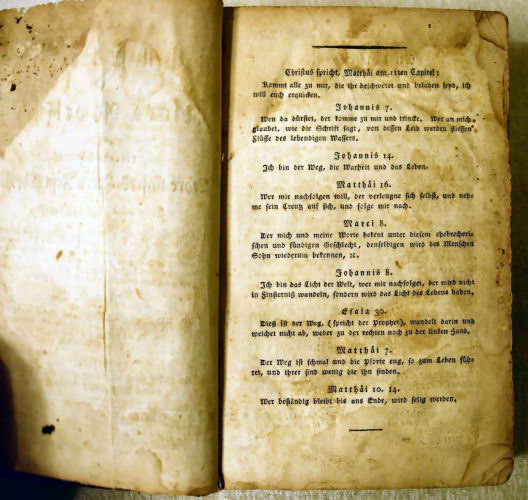 Christus spricht, Matthäi am 11ten Capitel:
Kommt alle zu mir, die ihr beschweret und beladen seyd, ich
will euch erquicken.
Johannis 7.
Wen da dürstet, der komme zu mir und trincke. Wer an mich
glaubet, wie die Schrift sagt, von dessen Leib werden fliessen
Flüsse des lebendigen Wassers.
Johannis 14.
Ich bin der Weg, die Warheit und das Leben.
Matthäi 16.
Wer mir nachfolgen will, der verleugne sich selbst, und neh=
me sein Creutz auf sich, und folge mir nach.
Marci 8.
Der mich und meine Worte bekent unter diesem ehebrecheri=
schen und sündigen Geschlecht, denselbigen wird des Menschen
Sohn wiederum bekennen, ꝛc.
Johannis 8.
Ich bin das Licht der Welt, wer mir nachfolget, der wird nicht
in Finsterniß wandeln, sondern wird das Licht des Lebens haben.
Esaia 30.
Dieß ist der Weg, (spricht der Prophet), wandelt darin und
weichet nicht ab, weder zu der rechten noch zu der linken Hand.
Matthäi 7.
Der Weg ist schmal und die Pforte eng, so zum Leben füh=
ret, und ihrer sind wenig die ihn finden.
Matthäi 10. 14.
Wer beständig bleibt bis ans Ende, wird selig werden.